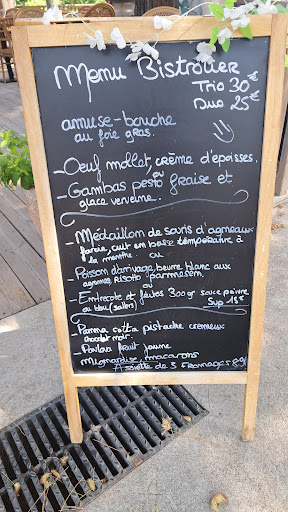 Menu Bistrotier
Trio 30€
Duo 25€
amuse-bouche
au foie gras.
- Oeuf mollet, crème d'epoisses.
ou
- Gambas pesto fraise et
glace verveine.
- Médaillon de souris d'agneaux
farcie, cuit en basse température à
la menthe. ou
- Poisson d'arrivage, beurre blanc aux
agrumes, Risotto parmesan
ou
- Entrecote et frites 300gr sauce poivre
ou bleu (sallers) Sup 15€
- Panna cotta pistache cremeux
chocolat noir.
- Pavlova fruit jaune
Mignardise, macarons
Assiette de 3 Fromages 8€